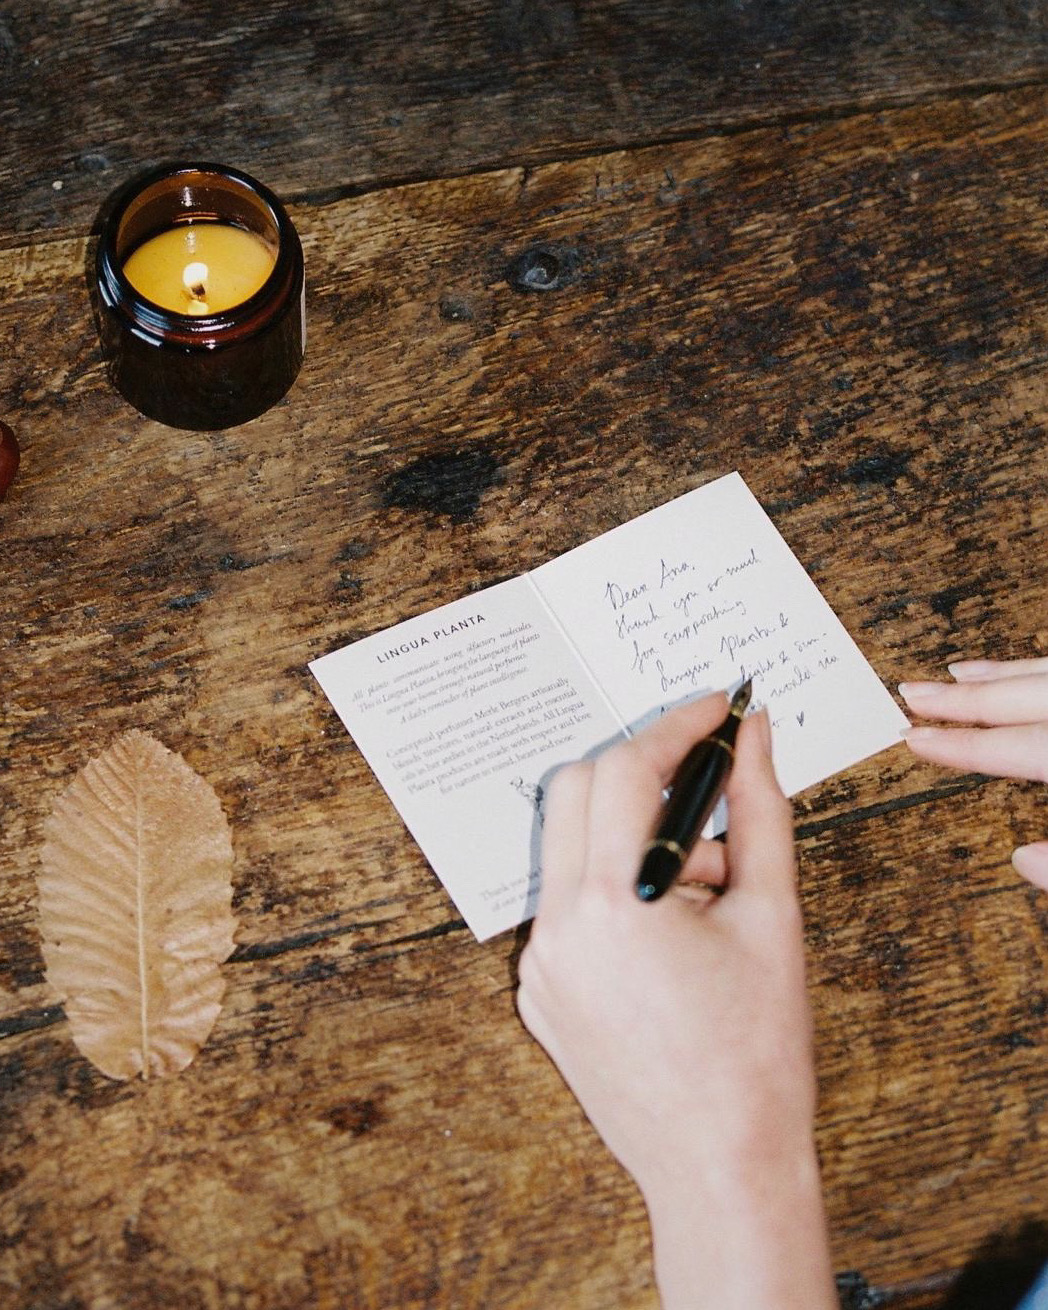 LINGUA PLANTA
All plants communicate using olfactory molecules.
This is Lingua Planta, bringing the language of plants
into your home through natural perfumes.
A daily reminder of plant intelligence.
Conceptual perfumer Merle Bergers artisanally
blends tinctures, natural extracts and essential
oils in her atelier in the Netherlands. All Lingua
Planta products are made with respect and love
for nature in mind, heart and nose.
Thank you
of our
Dear Ana,
thank you so much
for supporting
Lingua Planta &
light &
world
♥